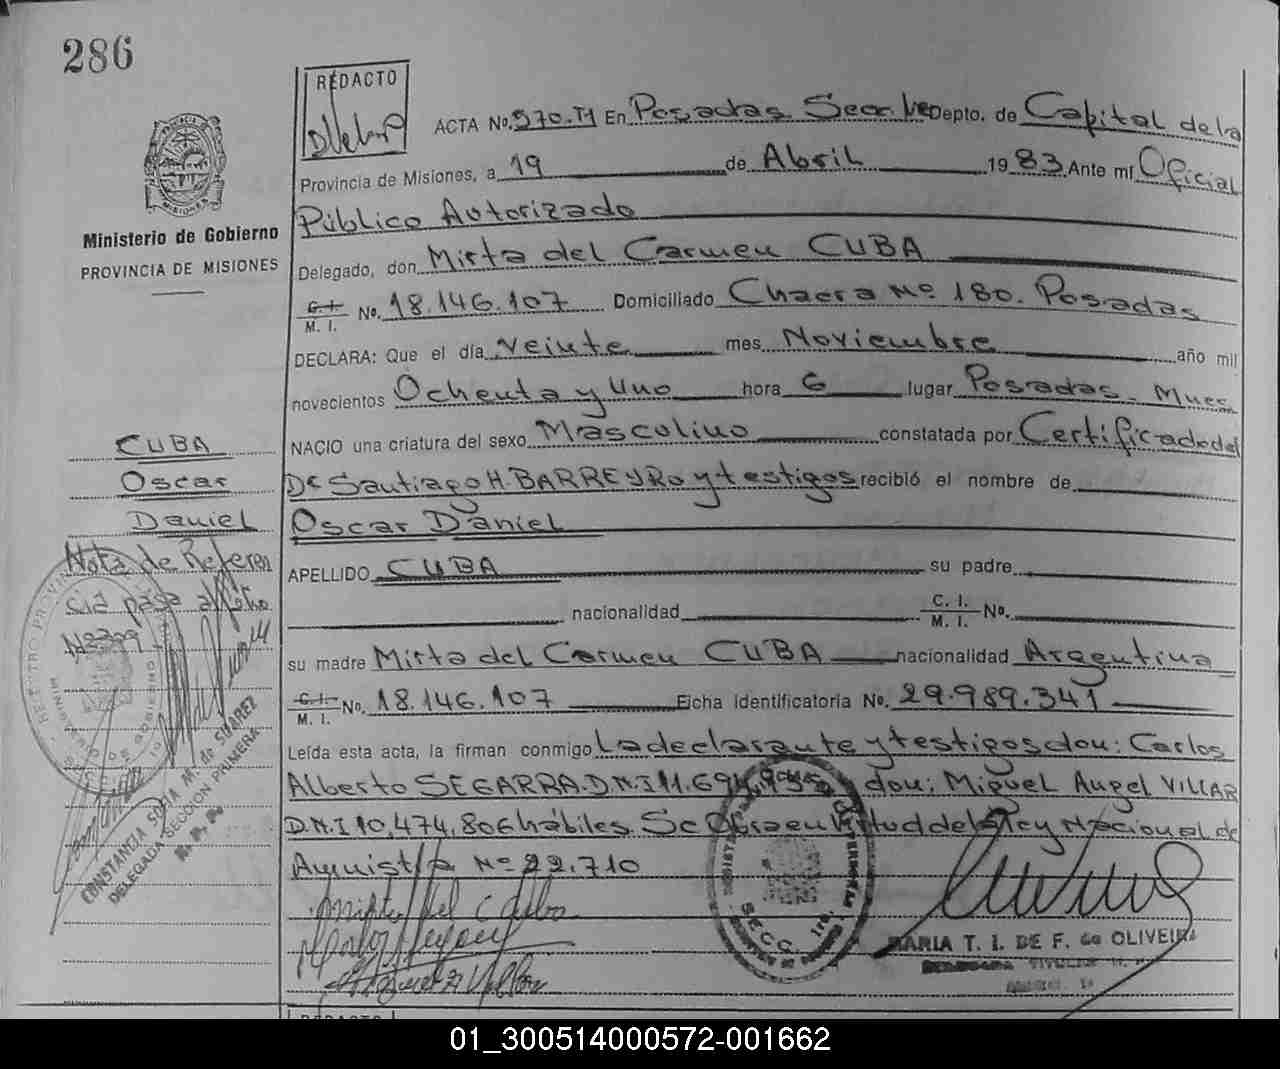 286
REDACTO
ACTA No. 570.T1 En Posadas Secc. 1ra Depto. de Capital de la
Provincia de Misiones, a 19 de Abril 1983 Ante mí Oficial
Público Autorizado
Ministerio de Gobierno
PROVINCIA DE MISIONES
Delegado, don Mirta del Carmen CUBA
C. I.
M. I. No. 18.146.107 Domiciliado Chacra Nº 180. Posadas
DECLARA: Que el día veinte mes Noviembre año mil
novecientos Ochenta y Uno hora 6 lugar Posadas - Mnes.
NACIO una criatura del sexo Masculino constatada por Certificado del
Dr Santiago H. BARREYRO y testigos recibió el nombre de
Oscar Daniel
APELLIDO CUBA su padre
nacionalidad C. I.
M. I. No.
su madre Mirta del Carmen CUBA nacionalidad Argentina
C. I.
M. I. No. 18.146.107 Ficha identificatoria No. 29.989.341
Leída esta acta, la firman conmigo La declarante y testigos don: Carlos
Alberto SEGARRA. D.N.I 11.694.935 don: Miguel Angel VILLAR
D.N.I 10.474.806 hábiles. Se Labra en virtud de la Ley Nacional de
Amnistía Nº 22.710
CUBA
Oscar
Daniel
Nota de Referen
cia pasa al folio
Nº 399
CONSTANCIA SOFIA M. de SUAREZ
DELEGADA SECCION PRIMERA
SECC. 1ra.
MARIA T. I. DE F. de OLIVEIRA
REDACTO
01_300514000572-001662